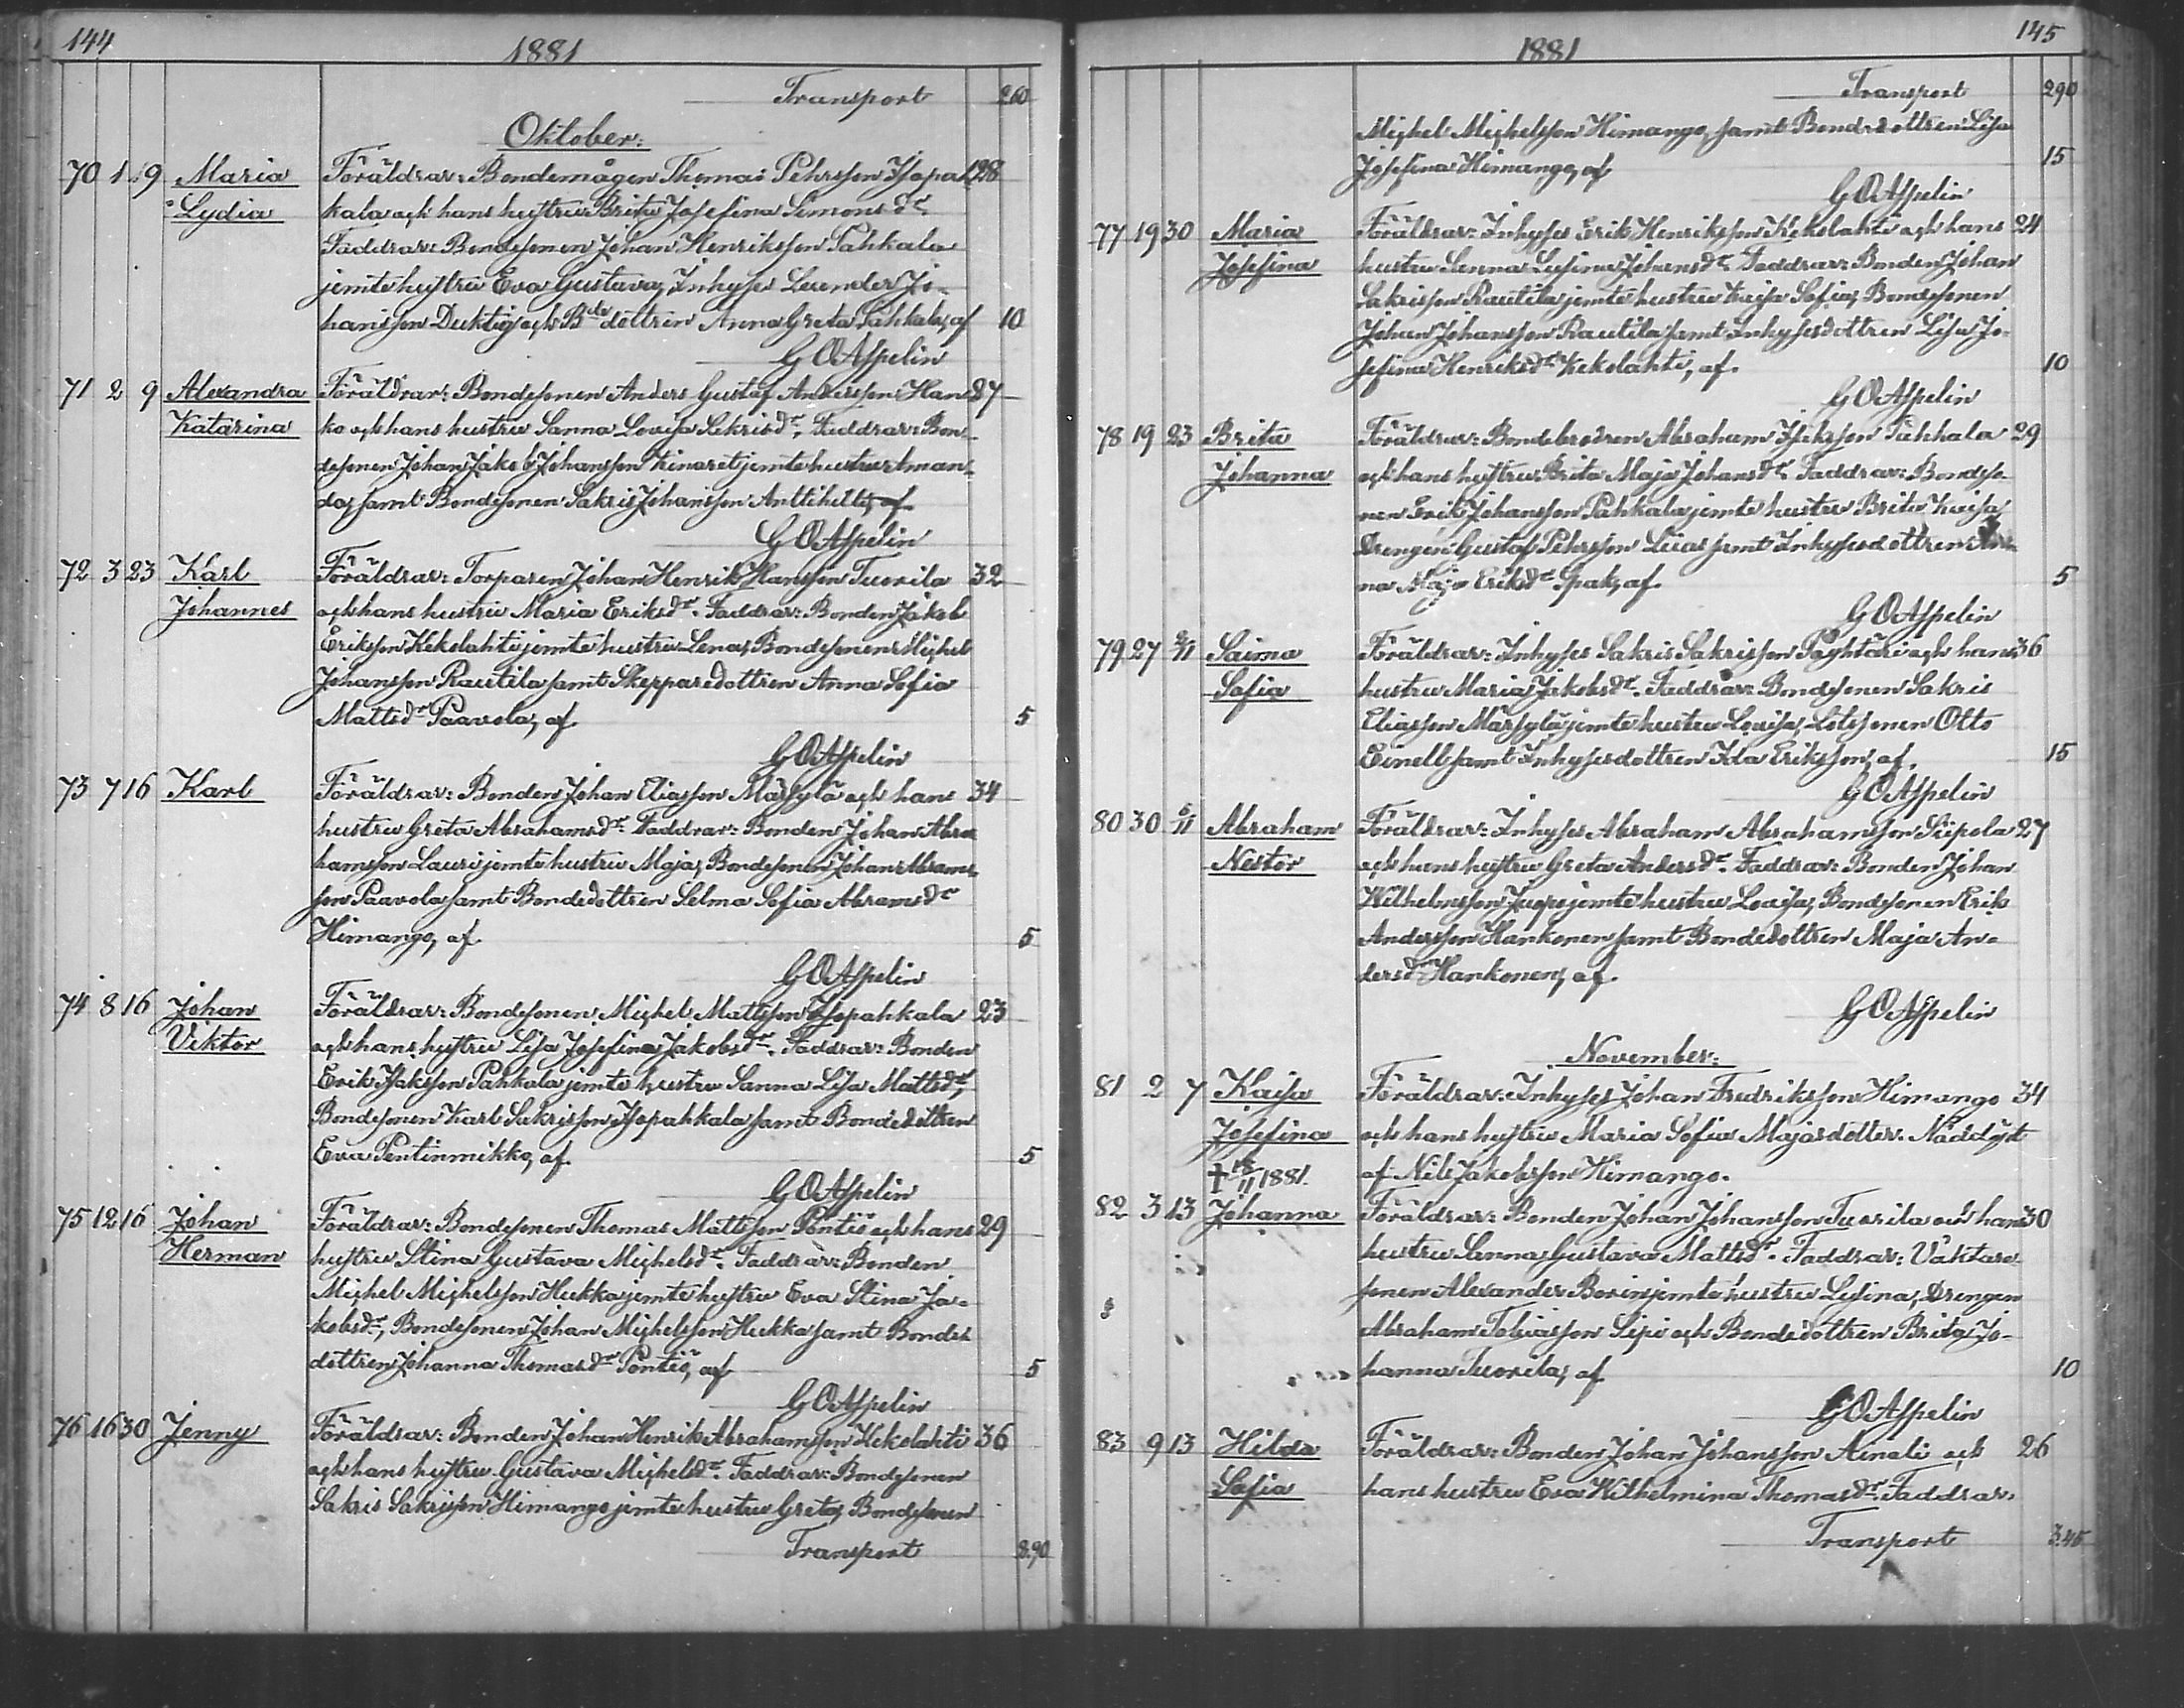 144
1881
Transport 260
Oktober:
70 1 9 Maria Föräldrar: Bondemågen Thomas Pehrsson Isopah 28
Lydia kala och hans hustru Brita Josefina Simonsdr
Faddrar: Bondesonen Johan Henriksson Pahkala
jemte hustru Eva Gustava, Inhyses Leander Jo-
hansson Duktig och Bdedottren Anna Greta Pahkala, af 10
G O Aspelin
71 2 9 Alexandra Föräldrar: Bondesonen Anders Gustaf Andersson Han 27
Katarina ko och hans hustru Sanna Lovisa Sakrisdr. Faddrar: Bon-
desonen Johan Jakob Johansson Kinaret jemte hustru Aman-
da, samt Bondesonen Sakris Johansson Anttihilti, af
G O Aspelin
72 3 23 Karl Föräldrar: Torparen Johan Henrik Hansson Tuorila 32
Johannes och hans hustru Maria Eriksdr. Faddrar: Bonden Jakob
Eriksson Kekolahti jemte hustru Lena, Bondesonen Mighel
Johansson Rautila samt Skepparedottren Anna Sofia
Mattsdr Paavola, af 5
G O Aspelin
73 7 16 Karl Föräldrar: Bonden Johan Eliasson Märsylä och hans 34
hustru Greta Abrahamsdr. Faddrar: Bonden Johan Abra
hamsson Lauri jemte hustru Maja, Bondesonen Johan Abrams-
son Paavola samt Bondedottren Selma Sofia Abramsdr
Himango, af 5
G O Aspelin
74 8 16 Johan Föräldrar: Bondesonen Mighel Mattsson Isopahkala 23
Viktor och hans hustru Lisa Josefina Jakobsdr. Faddrar: Bonden
Erik Isaksson Pahkala jemte hustru Sanna Lisa Mattsdr,
Bondesonen Karl Sakrisson Isopahkala samt Bondedottren
Eva Pentinmikko, af 5
G O Aspelin
75 12 16 Johan Föräldrar: Bondesonen Thomas Mattsson Pöntiö och hans 29
Herman hustru Stina Gustava Mighelsdr. Faddrar: Bonden
Mighel Mighelsson Hukka jemte hustru Eva Stina Ja-
kobsdr, Bondesonen Johan Mighelsson Hukka samt Bonde
dottren Johanna Thomasdr Pöntiö, af 5
G O Aspelin
76 16 30 Jenny Föräldrar: Bonden Johan Henrik Abrahamsson Kekolahti 36
och hans hustru Gustava Mighelsdr. Faddrar: Bondesonen
Sakris Sakrisson Himango jemte hustru Greta, Bondesonen
Transport
145
1881
Transport 290
Mighel Mighelsson Himango, samt Bondedottren Lisa
Josefina Himango, af 15
G O Aspelin
77 19 30 Maria Föräldrar: Inhyses Erik Henriksson Kekolahti och hans 24
Josefina hustru Sanna Lusina Johansdr. Faddrar: Bonden Johan
Sakrisson Rautila jemte hustru Kaisa Sofia, Bondesonen
Johan Johansson Rautila samt Inhysesdottren Lisa Jo-
sefina Henriksdr Kekolahti, af. 10
G O Aspelin
78 19 23 Brita Föräldrar: Bondebrodren Abraham Isaksson Pahkala 29
Johanna och hans hustru Brita Maja Johansdr. Faddrar: Bondeso-
nen Erik Johansson Pahkala jemte hustru Brita Kaisa,
Drengen Gustaf Pehrsson Luas samt Inhysesdottren An-
na Maja Eriksdr Spak, af 5
G O Aspelin
79 27 2/11 Saima Föräldrar: Inhyses Sakris Sakrisson Pöyhtäri och hans 36
Sofia hustru Maria Jakobsdr. Faddrar: Bondesonen Sakris
Eliasson Märsylä jemte hustru Lovisa, Lotssonen Otto
Einell samt Inhysesdottren Ida Eriksson, af. 15
G O Aspelin
80 30 6/11 Abraham Föräldrar: Inhyses Abraham Abrahamsson Siipola 27
Nestor och hans hustru Greta Andersdr. Faddrar: Bonden Johan
Wilhelmsson Juopo jemte hustru Lovisa, Bondesonen Erik
Andersson Hankonen samt Bondedottren Maja An-
dersdr Hankonen, af.
G O Aspelin
November:
81 2 7 Kaisa Föräldrar: Inhyses Johan Fredriksson Himango 34
Josefina och hans hustru Maria Sofia Majasdotter. Nöddöpt
† 18/11 1881. af Nils Jakobsson Himango.
82 3 13 Johanna Föräldrar: Bonden Johan Johansson Tuorila och hans 30
hustru Sanna Gustava Mattsdr. Faddrar: Väktare-
sonen Alexander Borin jemte hustru Lusina, Drengen
Abraham Tobiasson Sipi och Bondedottren Brita Jo-
hanna Tuorila, af 10
G O Aspelin
83 9 13 Hilda Föräldrar: Bonden Johan Johansson Ainali och 26
Sofia hans hustru Eva Wilhelmina Thomasdr. Faddrar.
Transport 3.45